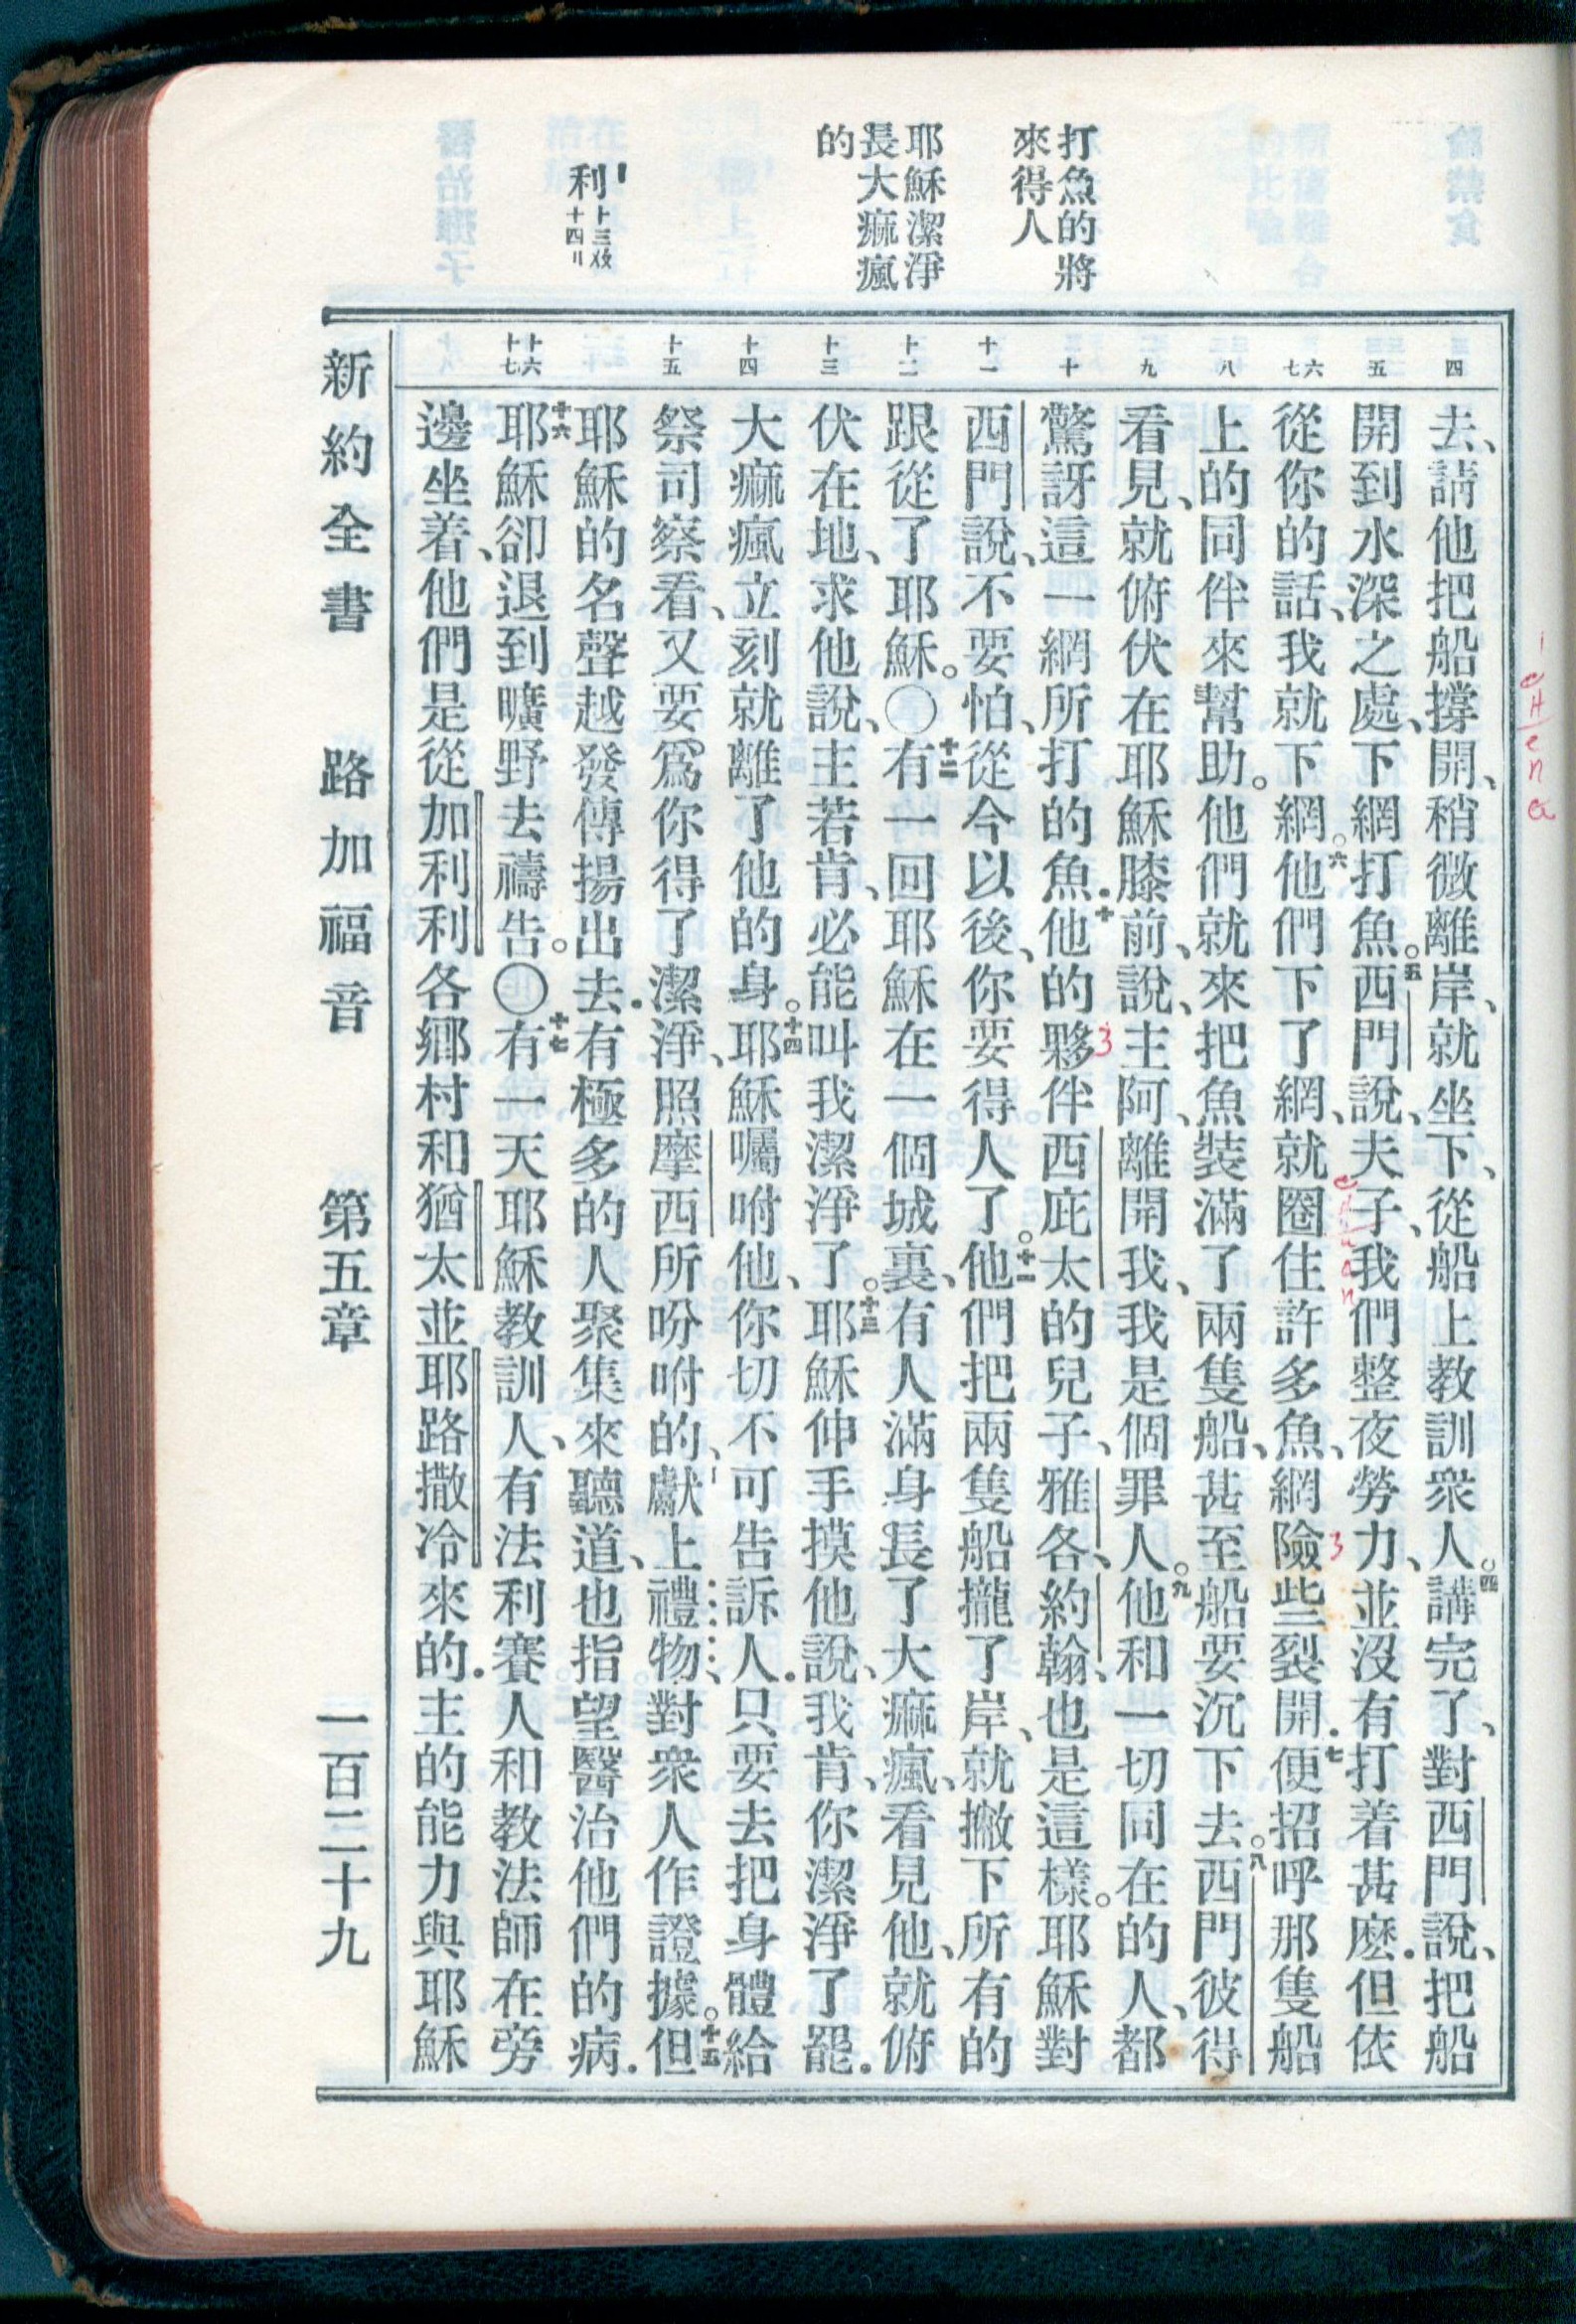 打魚的將
來得人
耶穌潔淨
長大痲瘋
的
利
四
五
六
七
八
九
十
十一
十二
十三
十四
十五
十六
十七
去、請他把船撐開、稍微離岸、就坐下、從船上教訓衆人。四講完了、對西門說、把船
開到水深之處、下網打魚。五西門說、夫子、我們整夜勞力、並沒有打着甚麽．但依
從你的話、我就下網。六他們下了網、就圈住許多魚、網險些裂開．七便招呼那隻船
上的同伴來幫助。他們就來把魚裝滿了兩隻船、甚至船要沉下去。八西門彼得
看見、就俯伏在耶穌膝前、說、主阿、離開我、我是個罪人。九他和一切同在的人、都
驚訝這一網所打的魚．十他的夥伴西庇太的兒子、雅各、約翰、也是這樣。耶穌對
西門說、不要怕、從今以後、你要得人了。十一他們把兩隻船攏了岸、就撇下所有的
跟從了耶穌。〇十二有一回耶穌在一個城裏、有人滿身長了大痲瘋、看見他、就俯
伏在地、求他說、主若肯、必能叫我潔淨了。十三耶穌伸手摸他說、我肯、你潔淨了罷．
大痲瘋立刻就離了他的身。十四耶穌囑咐他、你切不可告訴人．只要去把身體給
祭司察看、又要爲你得了潔淨、照摩西所吩咐的、獻上禮物、對衆人作證據。十五但
耶穌的名聲越發傳揚出去．有極多的人聚集來聽道、也指望醫治他們的病．
十六耶穌卻退到曠野去禱告。〇十七有一天耶穌教訓人、有法利賽人和教法師在旁
邊坐着、他們是從加利利各鄉村和猶太並耶路撒冷來的．主的能力與耶穌
新約全書 路加福音 第五章 一百二十九